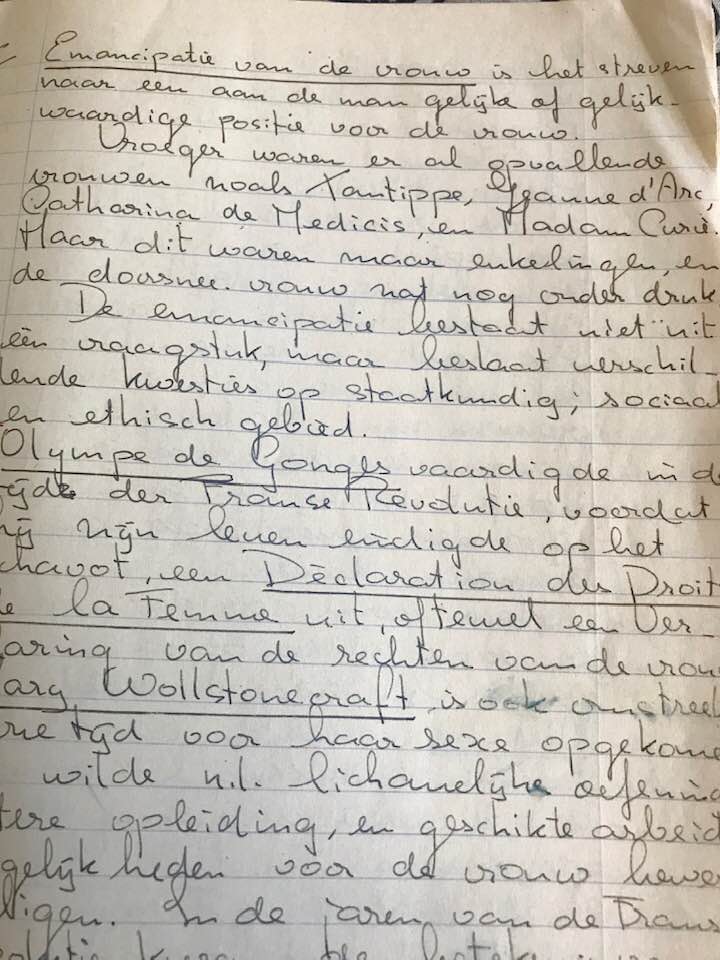 Emancipatie van de vrouw is het streven
naar een aan de man gelijke of gelijk-
waardige positie voor de vrouw.
Vroeger waren er al opvallende
vrouwen zoals Xantippe, Jeanne d'Arc,
Catharina de Medicis, en Madam Curie.
Maar dit waren maar enkelingen, en
de doorsnee vrouw zat nog onder druk
De emancipatie bestaat niet uit
één vraagstuk, maar beslaat verschil-
lende kwesties op staatkundig; sociaal
en ethisch gebied.
Olympe de Gonges vaardigde in d
ijde der Franse Revolutie, voordat
ij zijn leven eindigde op het
chavot, een Déclaration des Droit
e la Femme uit, oftewel een Ver-
laring van de rechten van de vrou
ary Wollstonecraft is ook omstreek
ze tijd voor haar sexe opgekome
wilde n.l. lichamelijke oefening
tere opleiding, en geschikte arbeid
gelijkheden voor de vrouw bewe
ligen. In de jaren van de Frans